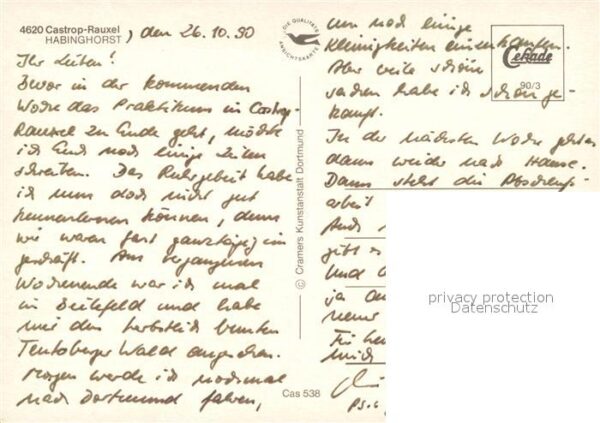 4620 Castrop-Rauxel
HABINGHORST, den 26.10.90
Ihr Lieben!
Bevor in der kommenden
Woche das Praktikum in Castrop-
Rauxel zu Ende geht, möchte
ich Euch noch einige Zeilen
schreiben. Das Ruhrgebiet habe
ich nun doch nicht gut
kennenlernen können, denn
wir waren fast ganztägig im
Geschäft. Am vergangenen
Wochenende war ich mal
in Bielefeld und habe
mir den herbstlich bunten
Teutoberger Wald angesehen.
Morgen werde ich nochmal
nach Dortmund fahren,
um noch einige
Kleinigkeiten einzukaufen.
Aber viele schöne
Sachen habe ich schon ge-
kauft.
In der nächsten Woche
dann wieder nach Hause.
Dann steht die
arbeit
Auch
gibt es
Und
ja
neue
Für
mich
PS.
DIE QUALITÄTS
ANSICHTSKARTE
© Cramers Kunstanstalt Dortmund
Cas 538
Cekade
90/3
privacy protection
Datenschutz